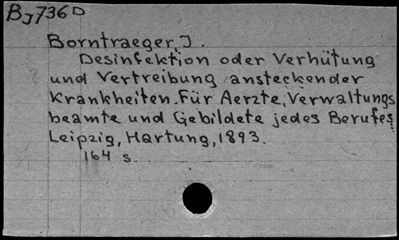 BJ736D
Borntraeger, J.
Desinfektion oder Verhütung
und Vertreibung ansteckender
Krankheiten. Für Aerzte, Verwaltungs
beamte und Gebildete jedes Berufes
Leipzig, Hartung, 1893.
164 s.